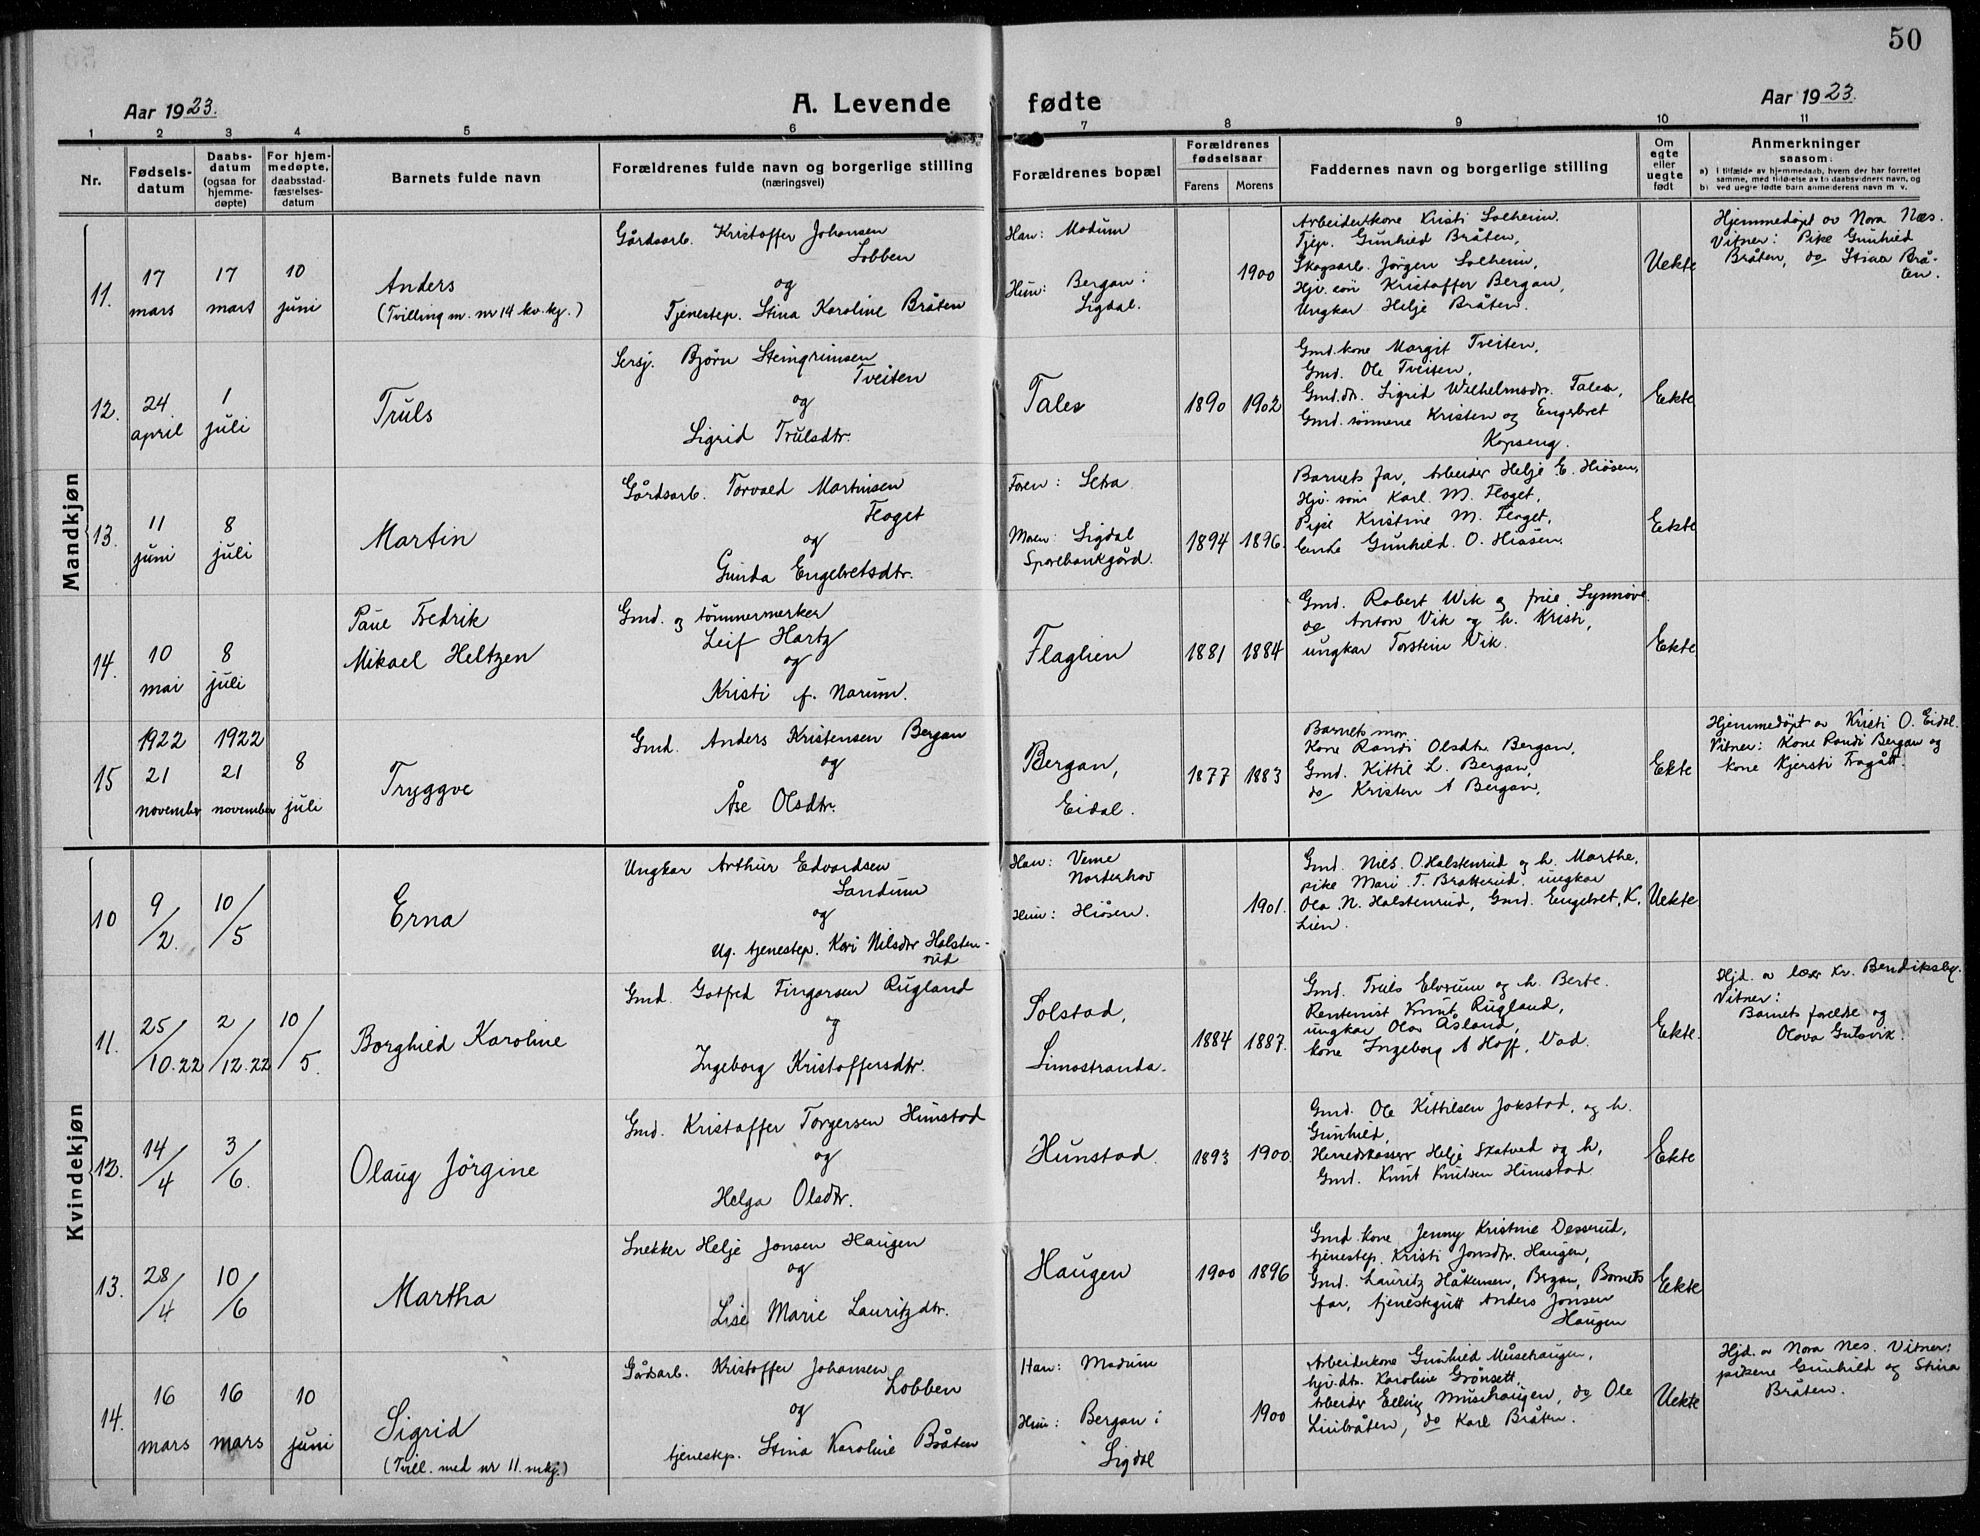 50
Aar 1923.
A. Levende fødte
Aar 1923.
1 2 3 4 5 6 7 8 9 10 11
Nr.
Fødsels-
datum
Daabs-
datum
(ogsaa for
hjemme-
døpte)
For hjem-
medøpte,
daabsstad-
fæstelses-
datum
Barnets fulde navn
Forældrenes fulde navn og borgerlige stilling
(næringsvei)
Forældrenes bopæl
Forældrenes
fødselsaar
Farens Morens
Faddernes navn og borgerlige stilling
Om
egte
eller
uegte
født
Anmerkninger
saasom:
a) I tilfælde av hjemmedaab, hvem der har forrettet
samme, med tilføielse av to daabsvidners navn, og
b) ved uegte fødte barn anmelderens navn m. v.
Mandkjøn
11.
17
mars
17
mars
10
juni
Anders
(Tvilling m. nr 14 kv.kj.)
Gårdsarb. Kristoffer Johansen
Lobben
og
Tjenestep. Stina Karoline Bråten
Han: Modum
Hun: Bergan i
Sigdal.
1900
Arbeiderkone Kristi Solheim.
Tjep. Gunhild Bråten,
Skogsarb. Jörgen Solheim,
Hjv. sön Kristoffer Bergan,
Ungkar Helje Bråten.
Uekte
Hjemmedøpt av Nora Næs.
Vitner: Pike Gunhild
Bråten, do Stina Brå-
ten.
12.
24
april
1
juli
Truls
Sersj. Bjørn Steingrimsen
Tveiten
og
Sigrid Trulsdtr.
Tales
1890 1902
Gmd.kone Margit Tveiten,
Gmd. Ole Tveiten,
Gmd.dtr. Sigrid Wilhelmsdtr. Tales,
Gmd. sönnene Kristen og Engebret
Kopseng.
Ekte
13.
11
juni
8
juli
Martin
Gårdsarb. Torvald Martinsen
Floget
og
Gunda Engebretsdtr.
Faren: Setra
Moren: Sigdal
Sparebankgård.
1894 1896.
Barnets far, Arbeider Helje E. Hiåsen,
Hjv. sön Karl M. Floget,
Pike Kristine M. Floget,
Enke Gunhild O. Hiåsen.
Ekte
14.
10
mai
8
juli
Paul Fredrik
Mikael Heltzen
Gmd. og tömmermerker
Leif Hartz
og
Kristi f. Narum.
Flaglien
1881 1884
Gmd. Robert Wik og frue Synnøve
do Anton Vik og h. Kristi,
ungkar Torstein Vik.
Ekte
15
1922
21
november
1922
21
november
8
juli
Tryggve
Gmd. Anders Kristensen Bergan
og
Åse Olsdtr.
Bergan,
Eidal.
1877 1883
Barnets mor
Kone Randi Olsdtr. Bergan,
Gmd. Kittil L. Bergan,
do Kristen A Bergan,
Ekte
Hjemmedøpt av Kristi O. Eidal.
Vitner: Kone Randi Bergan og
kone Kjersti Fragått.
Kvindekjøn
10
9/2.
10/5
Erna
Ungkar Arthur Edvardsen
Sandum
og
Ug. tjenestep. Kari Nilsdtr Halsten-
rud
Han: Veme
Norderhov
Hun: Hiåsen.
1901.
Gmd. Nils O.Halstenrud og h. Marthe,
pike Mari T. Bratterud. ungkar
Ola N. Halstenrud, Gmd. Engebret K.
Lien.
Uekte
11.
25/10.22
2/12.22
10/5.
Borghild Karoline
Gmd. Gotfred Fingarsen Rugland
og
Ingeborg Kristoffersdtr.
Solstad,
Simostranda.
1884 1887.
Gmd. Truls Elvrum og h. Berte.
Rentenist Knut Rugland,
ungkar Olav Åsland,
kone Ingeborg A Hoff, Vad.
Ekte.
Hjd. av lærer Kr. Bendiksby.
Vitner:
Barnets forelde og
Olava Gulsvik.
12.
14/4
3/6.
Olaug Jörgine
Gmd. Kristoffer Torgersen Hunstad
og
Helga Olsdtr.
Hunstad.
1893 1900.
Gmd. Ole Kittilsen Jokstad, og h.
Gunhild,
Herredskasser Helje Skatved og h,
Gmd. Knut Knutsen Hunstad
Ekte
13.
28/4
10/6
Martha
Snekker Helje Jonsen Haugen
og
Lise Marie Lauritzdtr.
Haugen
1900 1896
Gmd kone Jenny Kristine Desserud,
tjenestep. Kristi Jonsdtr. Haugen,
Gmd. Lauritz Håkensen, Bergan, Barnets
far, tjenestgutt Anders Jonsen
Haugen
Ekte
14.
16
mars
16
mars
10
juni
Sigrid
(Tvill. med nr 11. mkj.)
Gårdsarb. Kristoffer Johansen
Lobben
og
tjenestep. Stina Karoline Bråten
Han: Modum
Hun: Bergan i
Sigdal
1900
Arbeiderkone Gunhild Musehaugen,
hjv.dtr. Karoline Grönsett,
Arbeider Elling Musehaugen, do Ole
Linbråten, do Karl Bråten.
Uekte
Hjd. av Nora Nes. Vitner:
pikene Gunhild og Stina
Bråten.